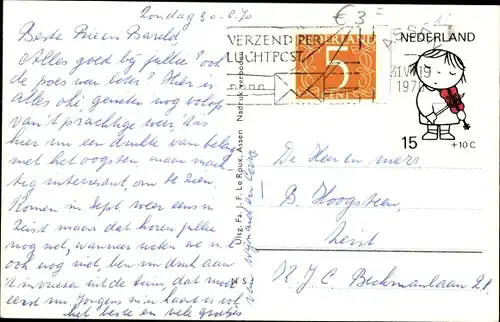 Zondag 30-8-70
Beste Riie en Bareld,
Alles goed bij jullie? ook
de poes weer beter? Hier is
alles oké, genieten nog volop
van 't prachtige weer, 't is
hier nu een drukte van belang
met het oogsten, maar mach
tig interessant, om te zien.
Komen in Sept weer eens in
Zeist maar dat horen jullie
nog wel, wanneer weten we nu
ook nog niet, ben nu druk aan
't invriezen uit de tuin, dat moet
eerst nu. Jongens
het beste en vele groetjes
van Wijnand en Corry
Uitg. Fa. J. F. Le Roux, Assen Nadruk verboden
N S
€ 3 =
VERZEND PER
LUCHTPOST
NEDERLAND
5
CENT
ASSEN
31 VIII 19
1970
NEDERLAND
15 +10 C
De Heer en mevr
B. Hoogsteen,
Zeist
K.J.C. Beckmanlaan 21